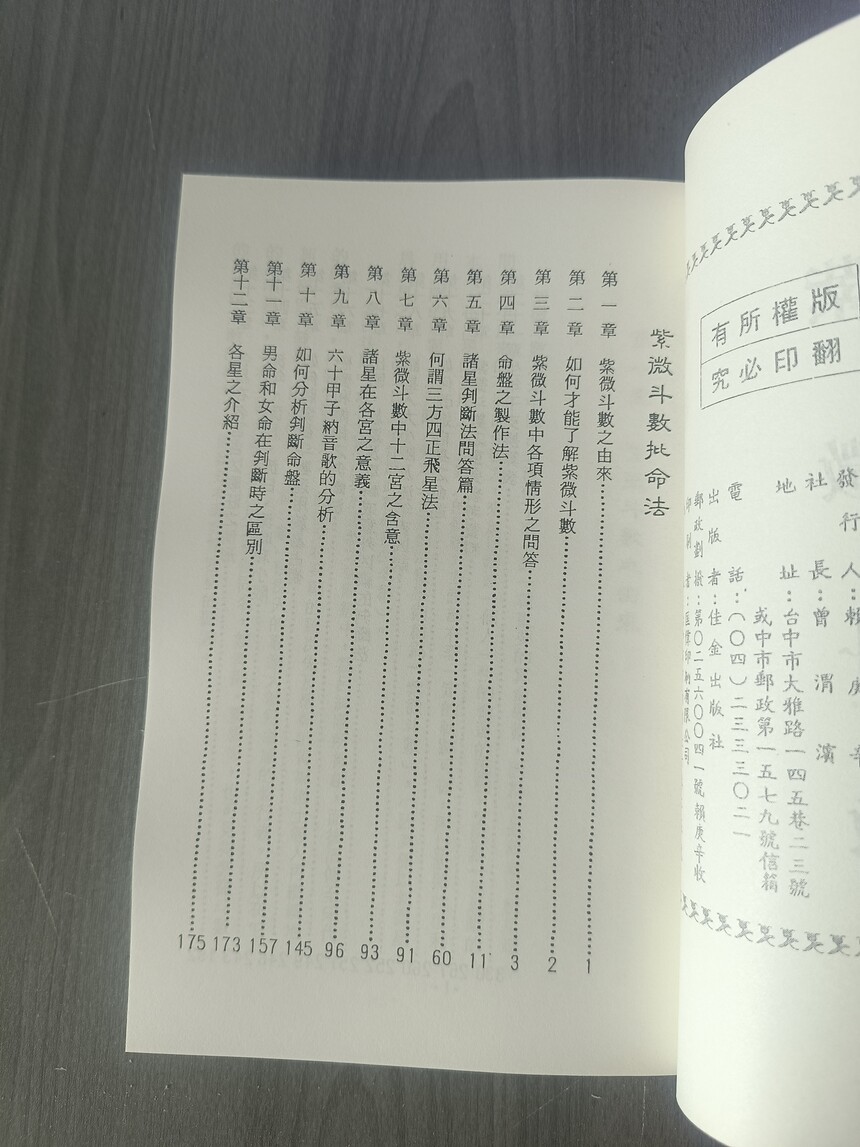 版權所有
翻印必究
發行人：賴庚辛
社長：曾渭濱
地址：台中市大雅路一四五巷二三號
或中市郵政第一五七九號信箱
電話：（〇四）二三三三〇二一
出版者：佳金出版社
郵政劃撥：第〇二五六〇〇四一號賴庚辛收
紫微斗數批命法
第一章 紫微斗數之由來 1
第二章 如何才能了解紫微斗數 2
第三章 紫微斗數中各項情形之問答 3
第四章 命盤之製作法 11
第五章 諸星判斷法問答篇 60
第六章 何謂三方四正飛星法 91
第七章 紫微斗數中十二宮之含意 93
第八章 諸星在各宮之意義 96
第九章 六十甲子納音歌的分析 145
第十章 如何分析判斷命盤 157
第十一章 男命和女命在判斷時之區別 173
第十二章 各星之介紹 175